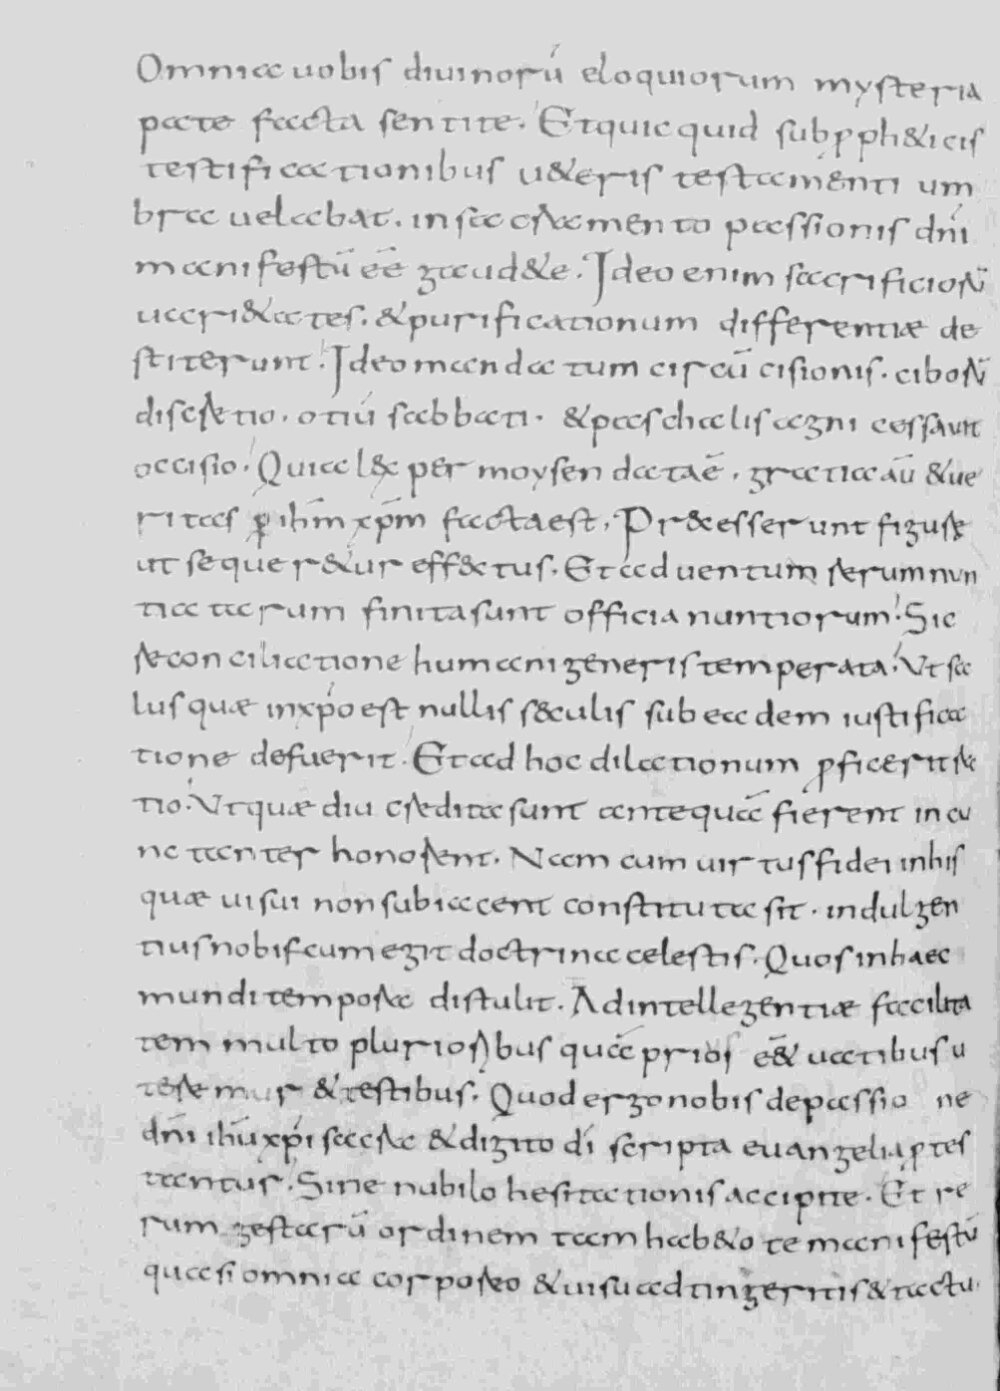 Omnia uobis diuinorū eloquiorum mysteria
pate facta sentite. Et quic quid sub ꝓph&icis
testificationibus u&eris testamenti um
bra uelabat. in sacramento passionis dn̄i
manifestū eē gaud&e. Ideo enim sacrificiorū
uari&ates. & purificationum differentiæ de
stiterunt. Ideo mandatum circū cisionis. ciborū
discretio. otiū sabbati. & paschalis agni cessauit
occisio. Quia l&c per moysen data ē. gratia aū & ue
ritas ꝑ ih̄m xp̄m facta est. Pr&esserunt figure
ut sequer&ur eff&ctus. Et aduentum rerum nun
tiatarum finita sunt officia nuntiorum. Sic
reconciliatione humani generis temperata. Ut sa
lus quæ in xp̄o est nullis seculis sub eadem iustifica
tione defuerit. Et ad hoc dilationum ꝓficerit ra
tio. Ut quæ diu credita sunt antequā fierent incu
nctanter honorent. Nam cum uirtus fidei in his
quæ uisui non subiacent constituta sit. indulgen
tius nobiscum egit doctrina celestis. Quos in haec
mundi tempora distulit. Ad intellegentiæ facilita
tem multo plurioribus quā priores & uatibus u
teremur & testibus. Quod ergo nobis de passio ne
dn̄i ih̄u xp̄i sacra & digito dī scripta euangelia ꝓtes
tantur. Sine nubilo hesitationis accipite. Et re
rum gestarū ordinem tam hab&o te manifestū
quasi omnia corporeo & uisu adtingeritis & tactu.